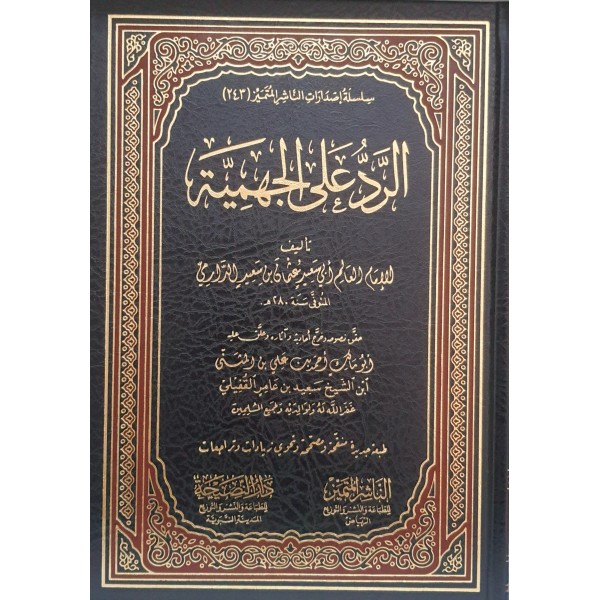 سلسلة إصدارات الناشر المتميز (٢٤٣)
الرد على الجهمية
تأليف
للإمام العالم أبي سعيد عثمان بن سعيد الدارمي
المتوفى سنة ٢٨٠ هـ.
حقق نصوصه وخرج أحاديثه وآثاره وعلق عليه
أبو مالك أحمد بن علي بن المثنى
ابن الشيخ سعيد بن عامر القفيلي
غفر الله له ولوالديه ولجميع المسلمين
طبعة جديدة منقحة ومصححة وتحوي زيادات وتراجعات
الناشر المتميز
للطباعة والنشر والتوزيع
الرياض
دار النصيحة
للطباعة والنشر والتوزيع
المدينة النبوية